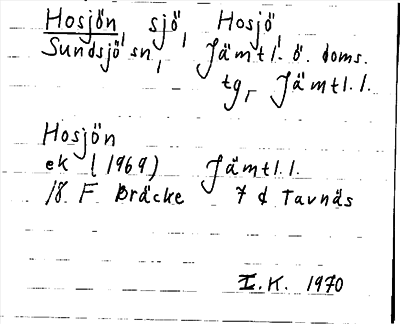 Hosjön, sjö, Hosjö,
Sundsjö sn, Jämtl. ö. doms.
tg, Jämtl. l.
Hosjön
ek (1969) Jämtl. l.
18 F Bräcke 7 d Tavnäs
I.K. 1970